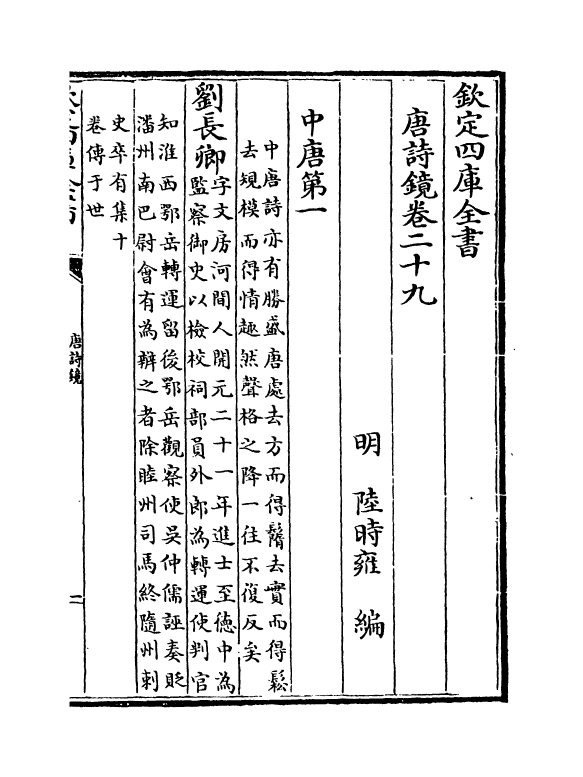 欽定四庫全書
唐詩鏡卷二十九
明 陸時雍 編
中唐第一
中唐詩亦有勝盛唐處去方而得髾去實而得鬆
去規模而得情趣然聲格之降一往不復反矣
劉長卿
字文房河間人開元二十一年進士至徳中為
監察御史以檢校祠部員外郎為轉運使判官
知淮西鄂岳轉運留後鄂岳觀察使吳仲儒誣奏貶
潘州南巴尉會有為辨之者除睦州司馬終隨州刺
史卒有集十
卷傳于世
唐詩鏡